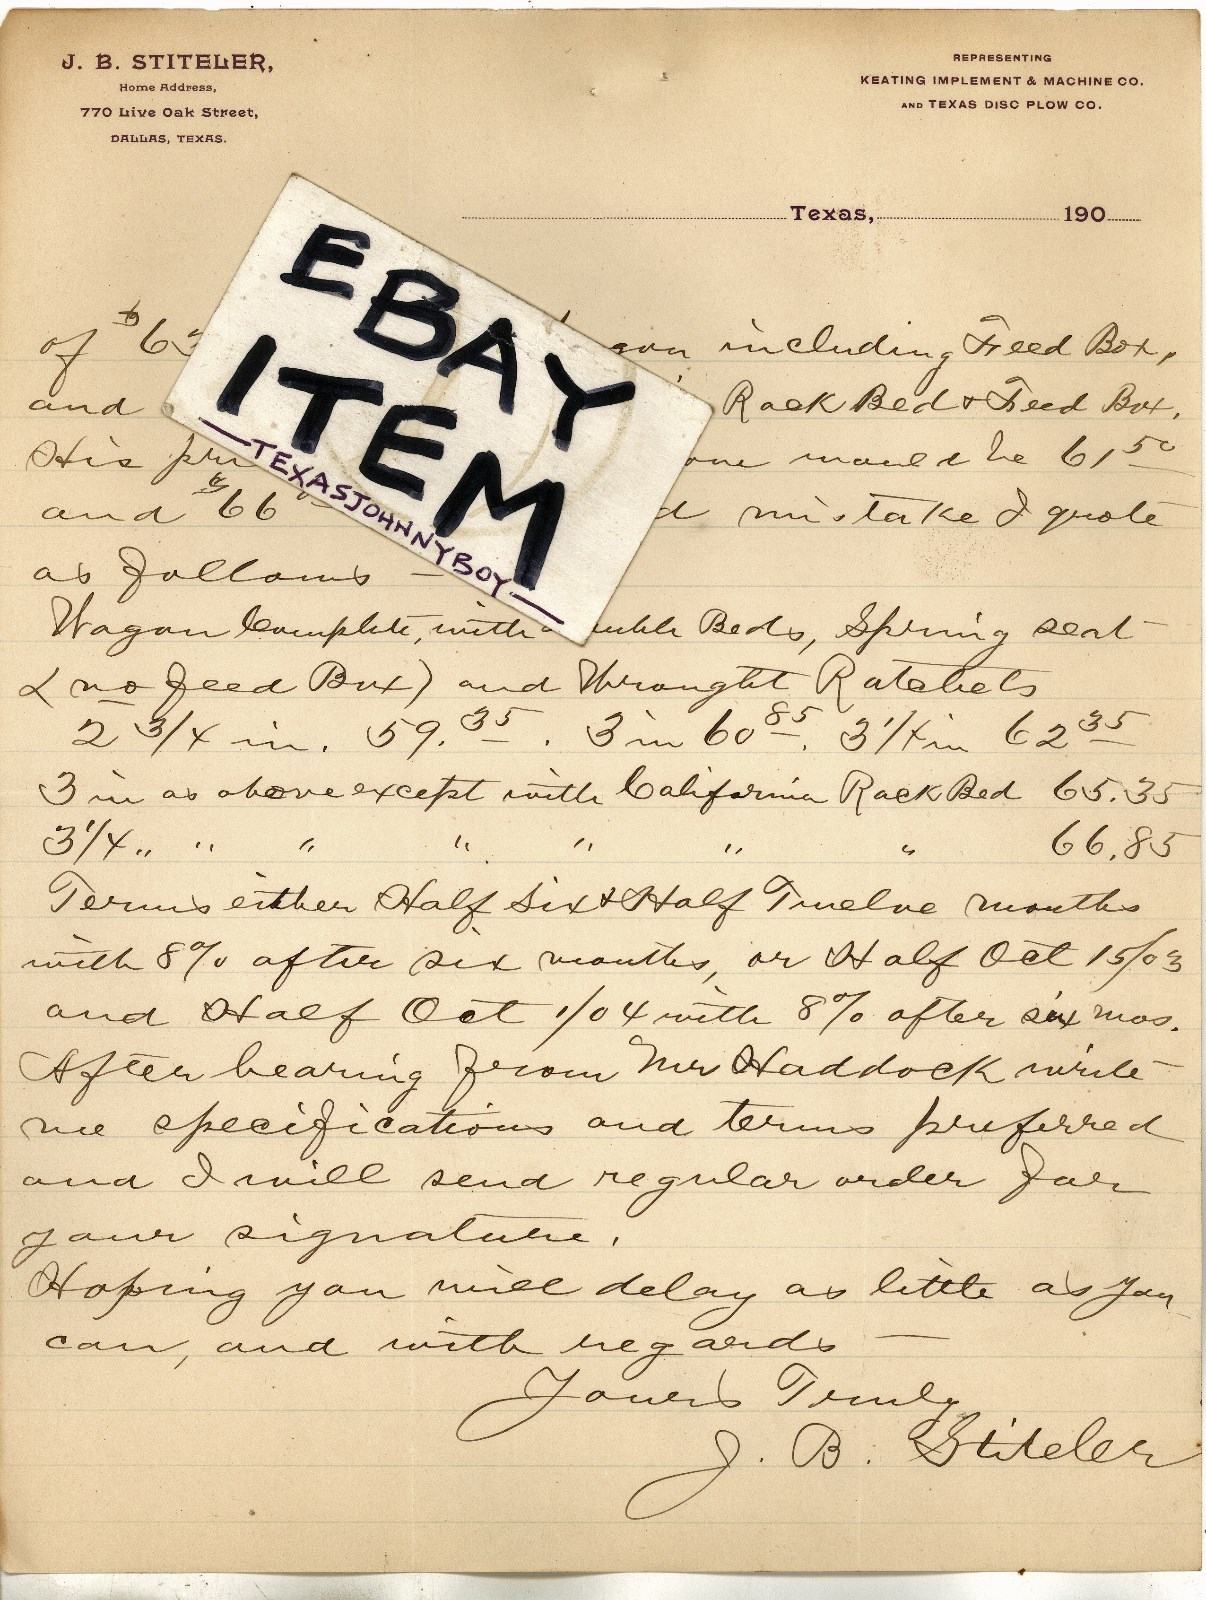 J. B. STITELER,
Home Address,
770 Live Oak Street,
DALLAS, TEXAS.
REPRESENTING
KEATING IMPLEMENT & MACHINE CO.
AND TEXAS DISC PLOW CO.
Texas, 190
EBAY
ITEM
TEXASJOHNNYBOY
of $63 including Feed Box,
and Rack Bed & Feed Box.
His would be 61 50
and $66 mistake I quote
as follows —
Wagon Complete, with Beds, Spring seat
(no feed Box) and Wrought Ratchets
2 3/4 in. 59.35. 3 in 60 85. 3 1/4 in 62 35
3 in as above except with California Rack Bed 65.35
3 1/4 " " " " " " " 66.85
Terms either Half Six & Half Twelve months
with 8% after six months, or Half Oct 15/03
and Half Oct 1/04 with 8% after six mos.
After hearing from Mr Haddock write
me specifications and terms preferred
and I will send regular order for
your signature.
Hoping you will delay as little as you
can, and with regards —
Yours Truly
J. B. Stiteler